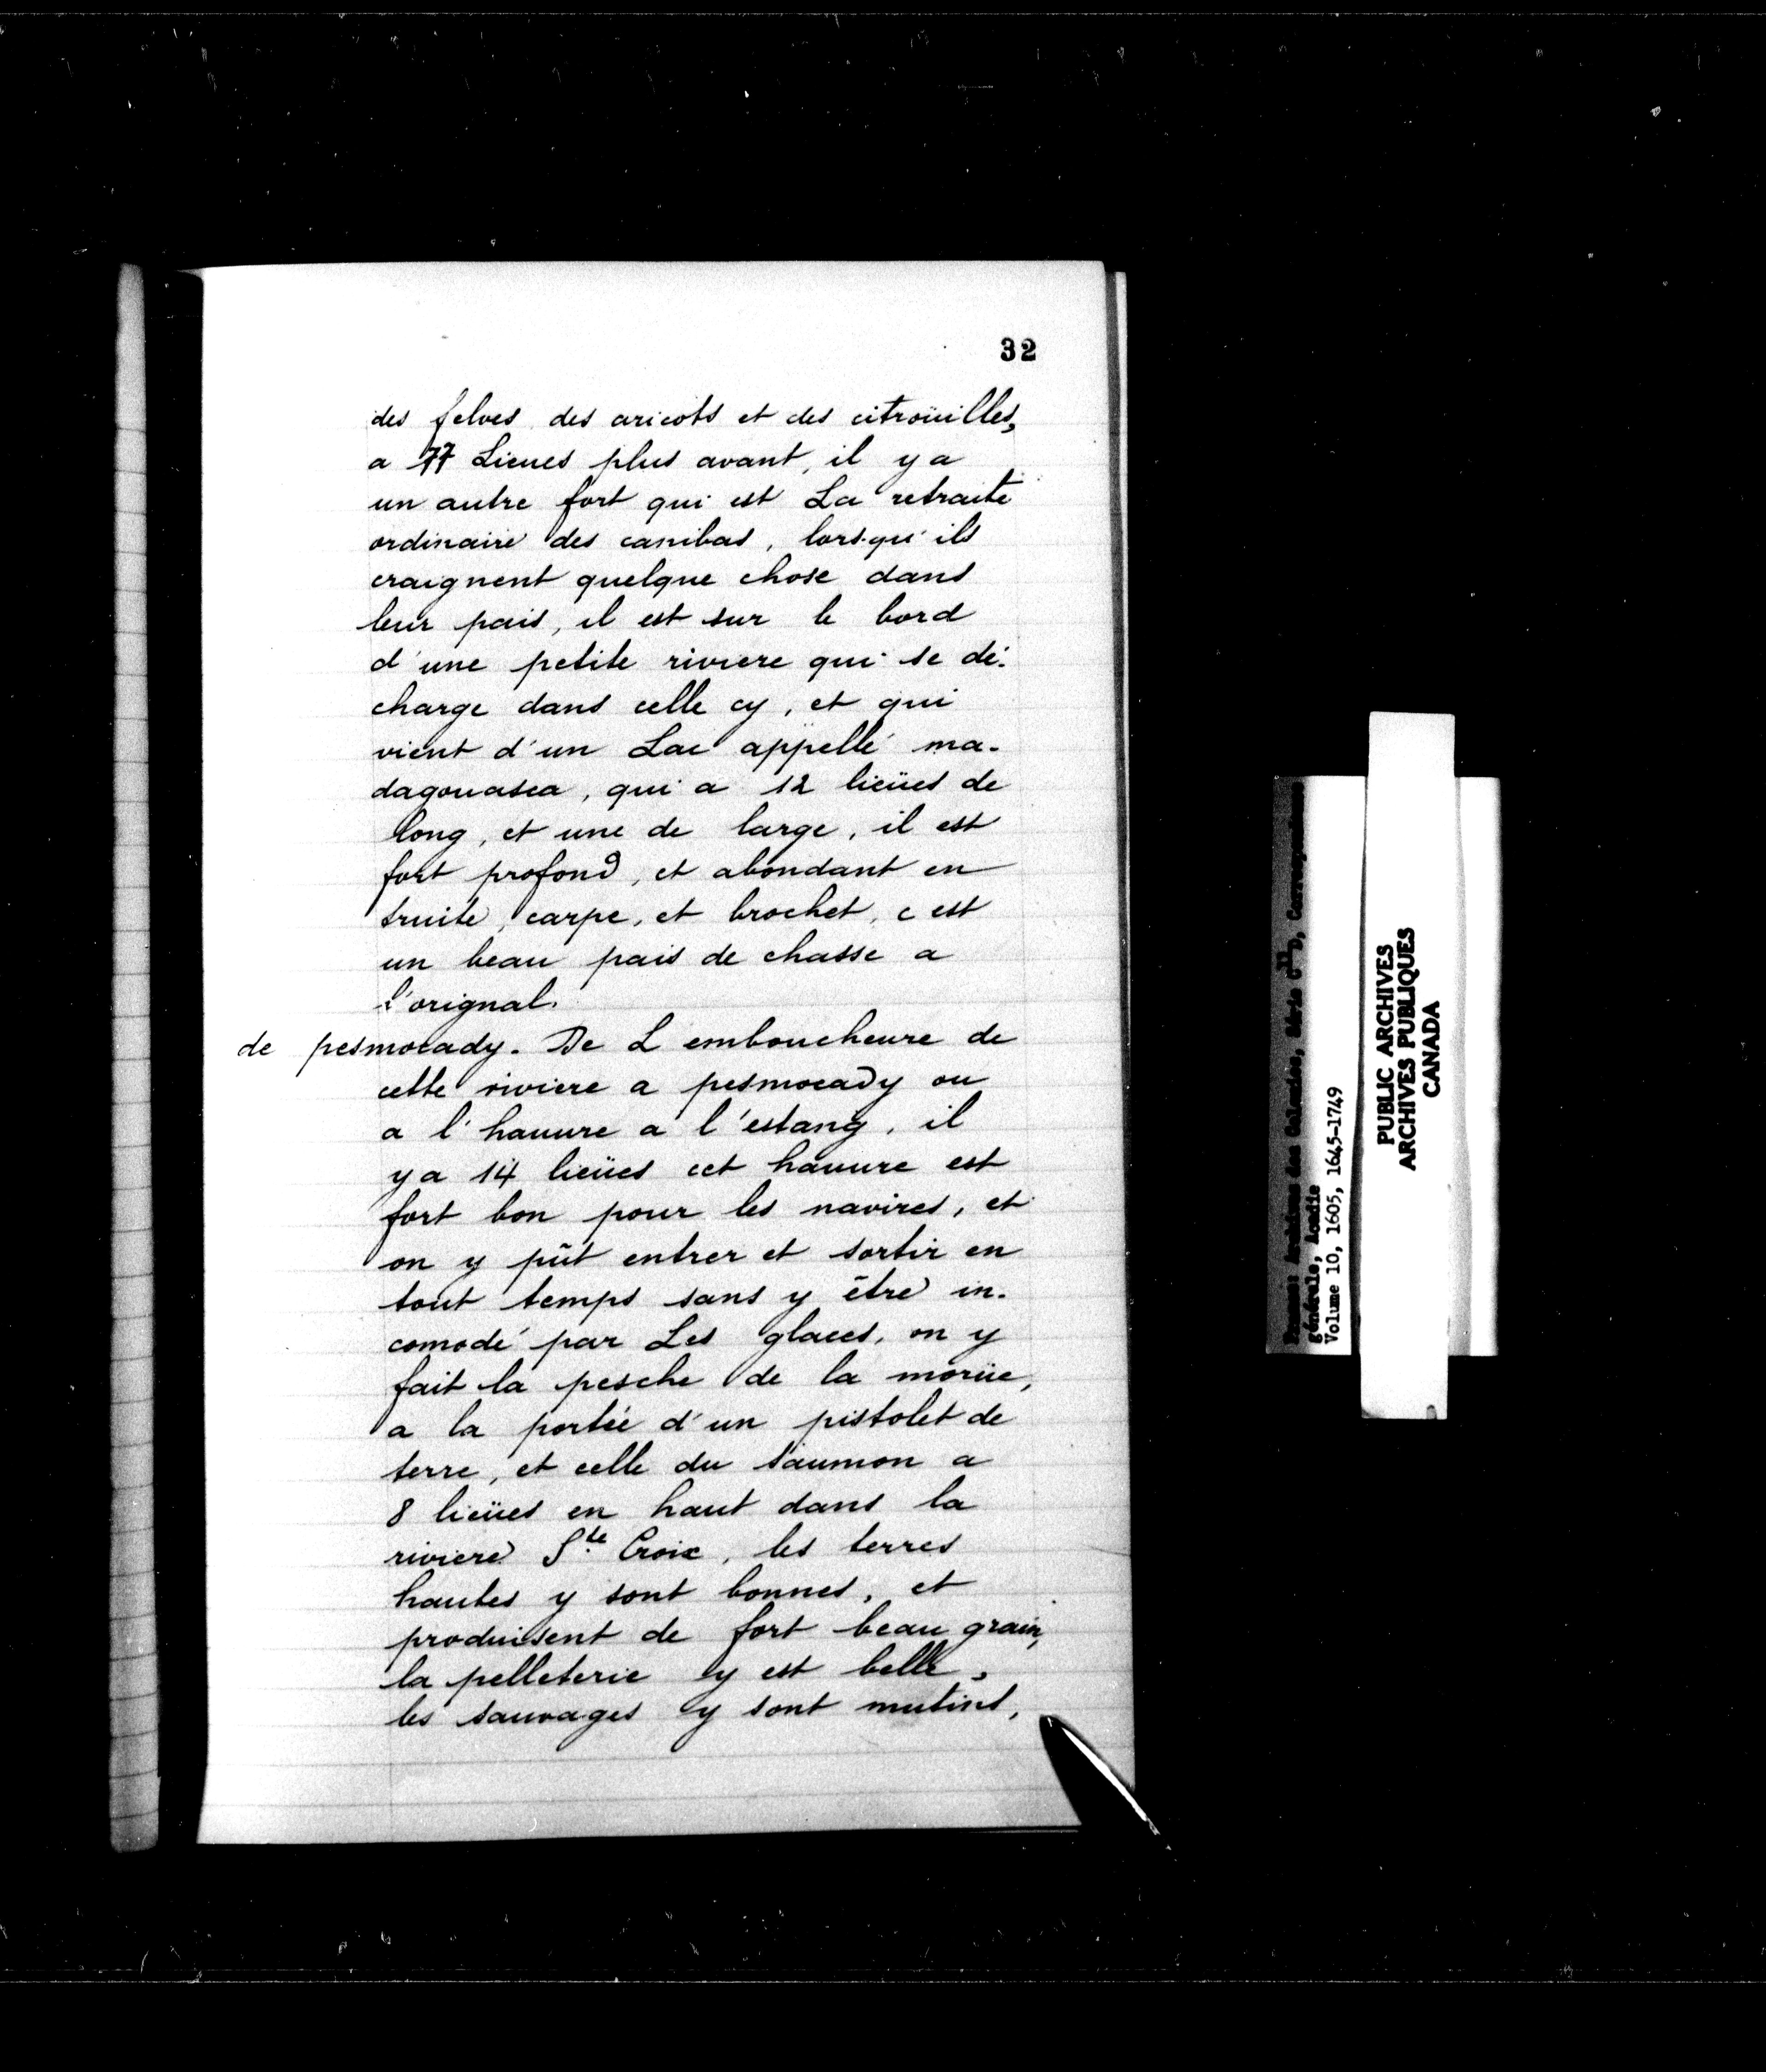 32
des felves des aricots et des citroüilles,
a 77 Lieues plus avant, il y a
un autre fort qui est La retraite
ordinaire des canibas, lors-qu'ils
craignent quelque chose dans
leur pais, il est sur le bord
d'une petite riviere qui se dé-
charge dans celle cy, et qui
vient d'un Lac appellé ma-
dagouasca, qui a 12 lieües de
long, et une de large, il est
fort profond, et abondant en
truite, carpe, et brochet, c est
un beau pais de chasse a
l'orignal.
de pesmocady. De L emboucheure de
cette riviere a pesmocady ou
a l'havure a l'estang, il
y a 14 lieües cet havure est
fort bon pour les navires, et
on y pût entrer et sortir en
tout temps sans y être in-
comodé par Les glaces, on y
fait la pesche de la morüe,
a la portée d'un pistolet de
terre, et celle du saumon a
8 lieües en haut dans la
riviere Ste Croix, les terres
hautes y sont bonnes, et
produisent de fort beau grain,
la pelleterie y est belle,
les sauvages y sont mutins,
France: Archives des Colonies, Série C11D, Correspondance
générale, Acadie
Volume 10, 1605, 1645-1749
PUBLIC ARCHIVES
ARCHIVES PUBLIQUES
CANADA